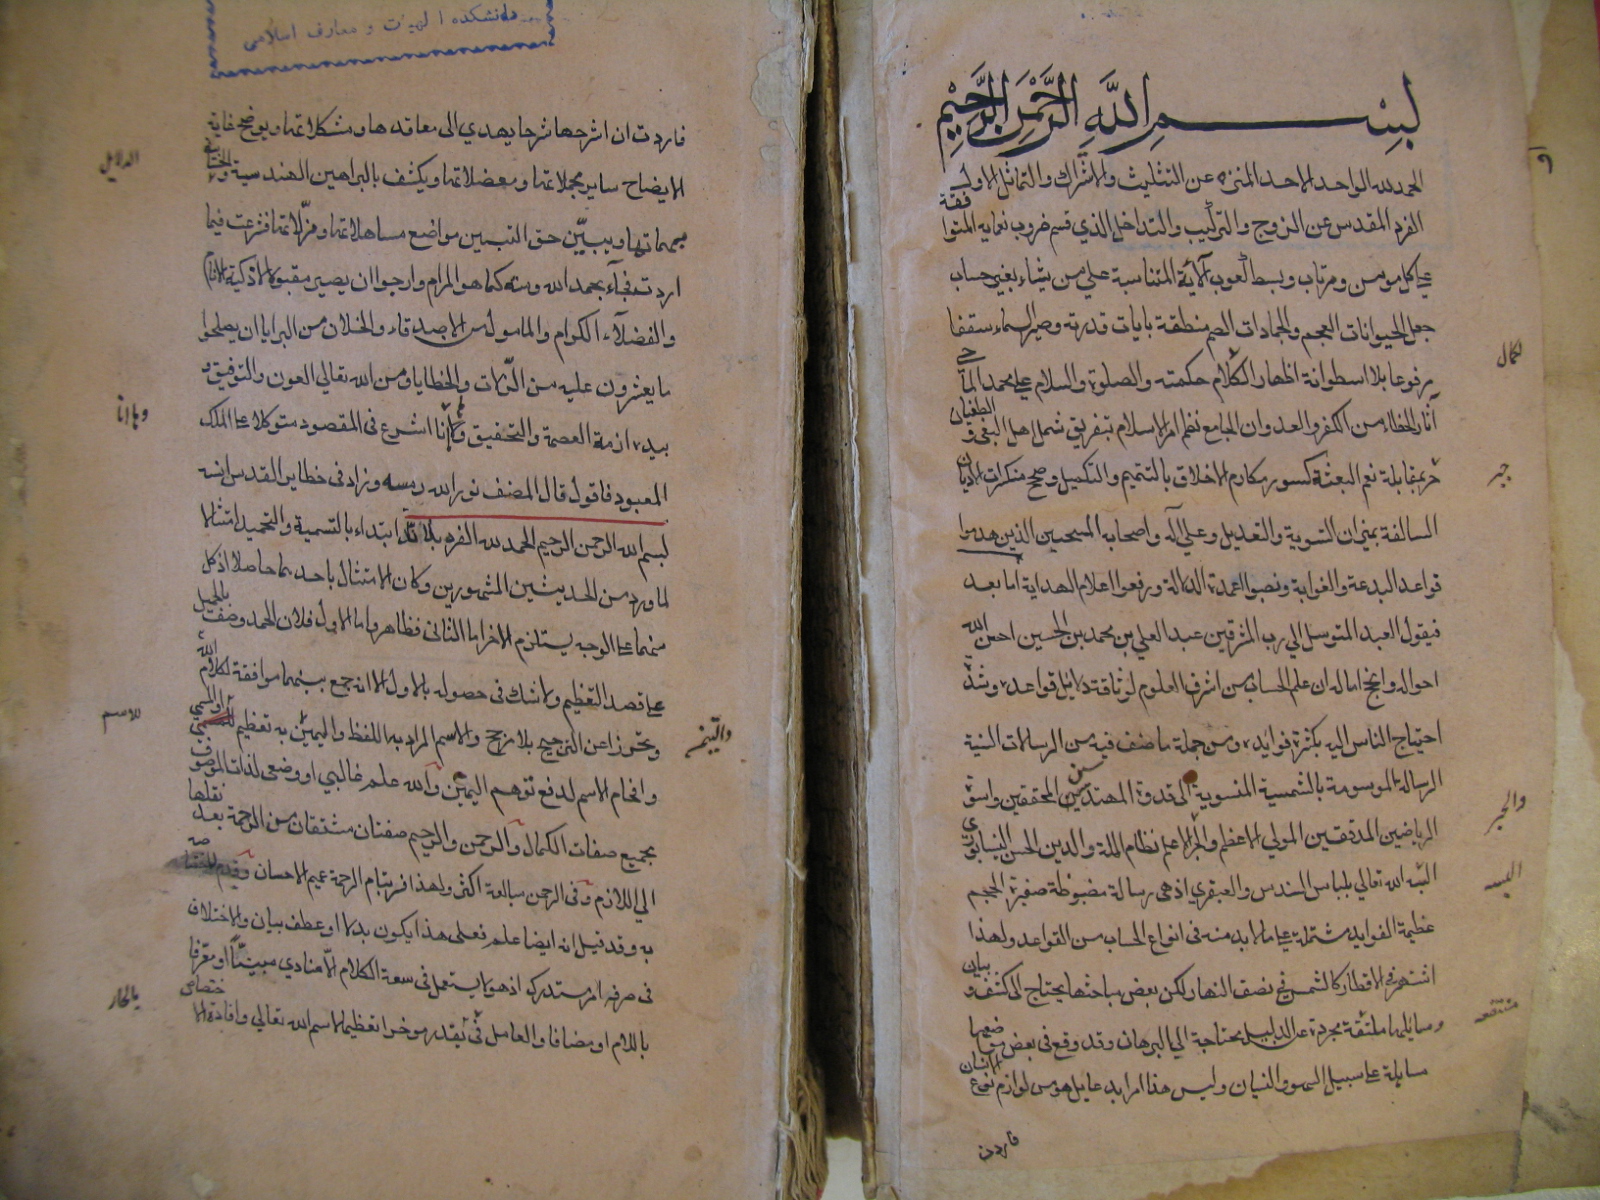 بسم الله الرحمن الرحيم
الحمد لله الواحد الاحد المنزه عن التثليث والاشتراك والتماثل الاول
الفرد المقدس عن الزوج والتركيب والتداخل الذي قسم ضروب نعمايه المتوافقة
على كل مومن ومرتاب وبسط الآئه المتناسبة على من يشاء بغير حساب
جعل الحيوانات العجم والجمادات الصم منطقة بايات قدرته وصير السماء سقفا
مرفوعا بلا اسطوانة اظهار الكمال حكمته والصلوة والسلام على محمد الماحي
آثار الخطاء من الكفر والعدوان الجامع نظم امر الاسلام بتفريق شمل اهل البغي والطغيان
بمقابلة نعم البعثة كسور مكارم الاخلاق بالتتميم والتكميل وصحح منكرات الاديان
السالفة بميزان التسوية والتعديل وعلى آله واصحابه الذين هدموا
قواعد البدعة والغواية ونصبوا اعمدة الدلالة ورفعوا اعلام الهداية اما بعد
فيقول العبد المتوسل الى رب المشرقين عبد العلي بن محمد بن الحسين احسن الله
احواله وانجح اماله ان علم الحساب من اشرف العلوم لوثاقة دلايل قواعده وشدة
احتياج الناس اليه بكثرة فوايده ومن جملة ما صنف فيه من الرسالات السنية
الرسالة الموسومة بالشمسية المنسوبة الى قدوة المهندسين المحققين واسوة
الرياضيين المدققين المولى الاعظم والحبر الاعلم نظام الملة والدين الحسن النيسابوري
البسه الله تعالى بلباس السندس والعبقري اذ هي رسالة مضبوطة صغيرة الحجم
عظيمة الفوايد مشتملة على ما لا بد منه في انواع الحساب من القواعد ولهذا
اشتهر في الاقطار كالشمس في نصف النهار لكن بعض مباحثها يحتاج الى كشف وبيان
ومسايلها مجردة عن الدليل محتاجة الى البرهان وقد وقع في بعض مواضعها
مسايلة على سبيل السهو والنسيان وليس هذا امرا بدعا بل هو من لوازم نوع الانسان
فاردت
لكمال
جبر
والحبر
البسه
دانشكده الهيات و معارف اسلامى
فاردت ان اشرحها شرحا يهدي الى معاقدها ومشكلاتها ويوضح غاية
الايضاح ساير مجملاتها ومعضلاتها ويكشف بالبراهين الهندسية
مبهماتها ويبين حق التبيين مواضع مساهلاتها ومزلاتها فشرعت فيما
اردت فجآء بحمد الله ومنه كما هو المرام وارجو ان يصير مقبولا لاذكية الانام
والفضلآء الكرام والمامول من الاصدقاء والخلان من البرايا ان يصلحوا
ما يعثرون عليه من الزلات والخطايا ومن الله تعالى العون والتوفيق و
بيده ازمة العصمة والتحقيق وها انا اشرع في المقصود متوكلا على الملك
المعبود فاقول قال المصنف نور الله رمسه وزاد في حظاير القدس انسه
بسم الله الرحمن الرحيم الحمد لله الفرد بلا ابتداء بالتسمية والتحميد امتثالا
لما ورد من الحديثين المشهورين وكان الامتثال باحدهما حاصلا اذ كل
منهما على الوجه يستلزم الاخر اما الثاني فظاهر واما الاول فلان الحمد وصف بالجميل
على قصد التعظيم ولا شك في حصوله بالاول الا انه جمع بينهما موافقة لكلام الله
وتحرزا عن الترجيح بلا مرجح والاسم المراد به اللفظ به تعظيم
واقحام الاسم لدفع توهم اليمين والله علم غالبي او وضعي لذات الموصوف
بجميع صفات الكمال والرحمن والرحيم صفتان مشتقان من الرحمة بعد نقلها
الى اللازم وفي الرحمن مبالغة اكثر ولهذا فسر بتام الرحمة عميم الاحسان وقدم
به وقد قيل انه ايضا علم فعلى هذا يكون بدلا او عطف بيان والاختلاف
في صرفه امر مستدرك اذ هو لا يستعمل في سعة الكلام الا منادي او معرفا
باللام او مضافا والعامل يقدر موخرا تعظيما لاسم الله تعالى وافادة الاختصاص
الدلايل
وها انا
للاسم